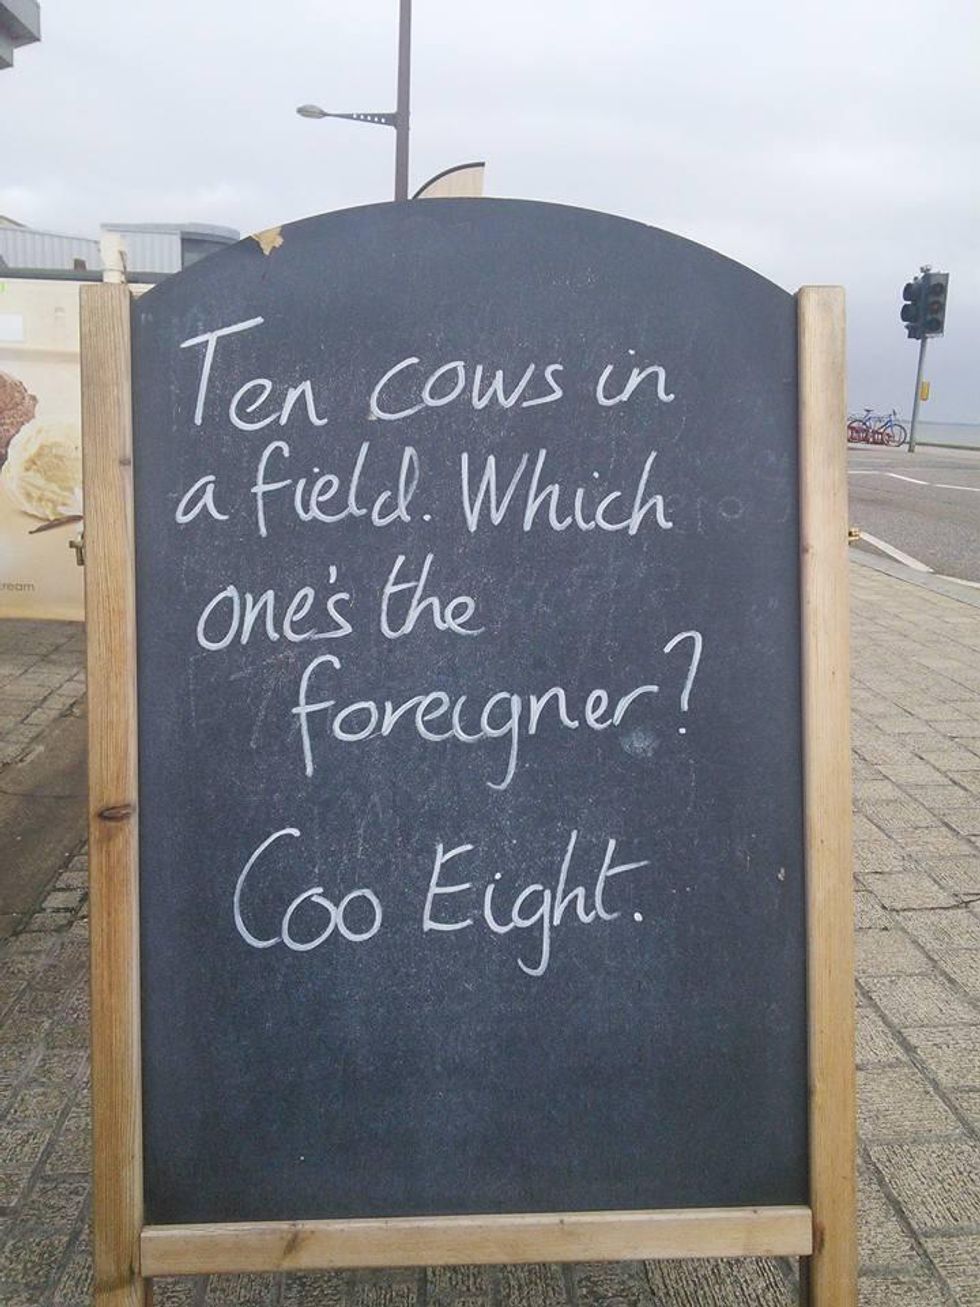 Ten cows in
a field. Which
one's the
foreigner?
Coo Eight.
cream